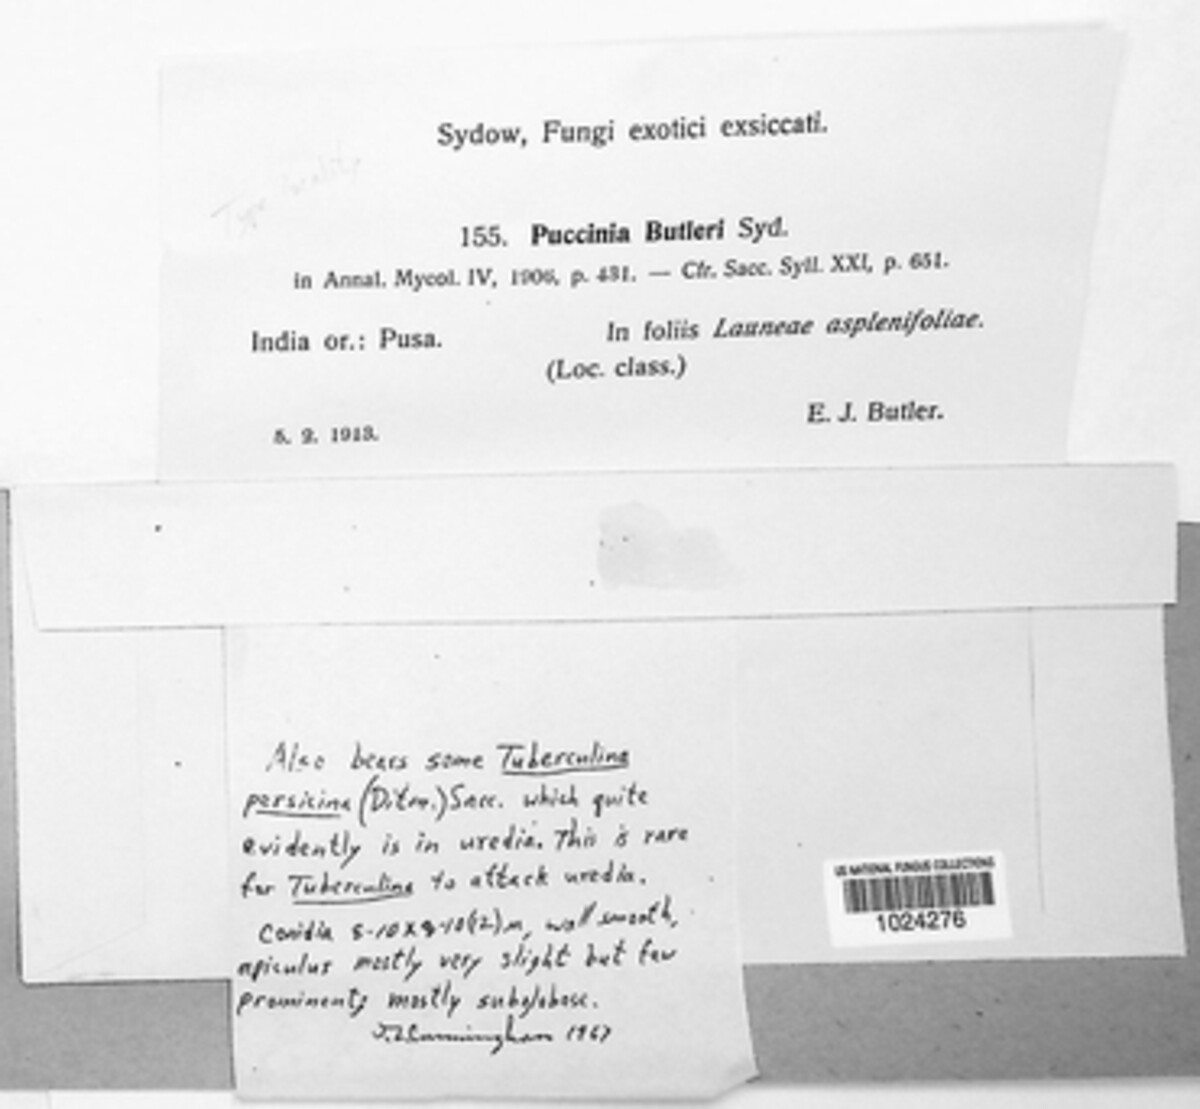 Sydow, Fungi exotici exsiccati.
Type locality
155. Puccinia Butleri Syd.
in Annal. Mycol. IV, 1906, p. 431. — Cfr. Sacc. Syll. XXI, p. 651.
India or.: Pusa. In foliis Launeae asplenifoliae.
(Loc. class.)
E. J. Butler.
5. 2. 1913.
Also bears some Tuberculina
persicina (Ditm.) Sacc. which quite
evidently is in uredia. This is rare
for Tuberculina to attack uredia.
Conidia 8-10 x 8-10(12) m, wall smooth,
apiculus mostly very slight but few
prominent; mostly subglobose.
Cunningham 1967
US NATIONAL FUNGUS COLLECTIONS
1024276